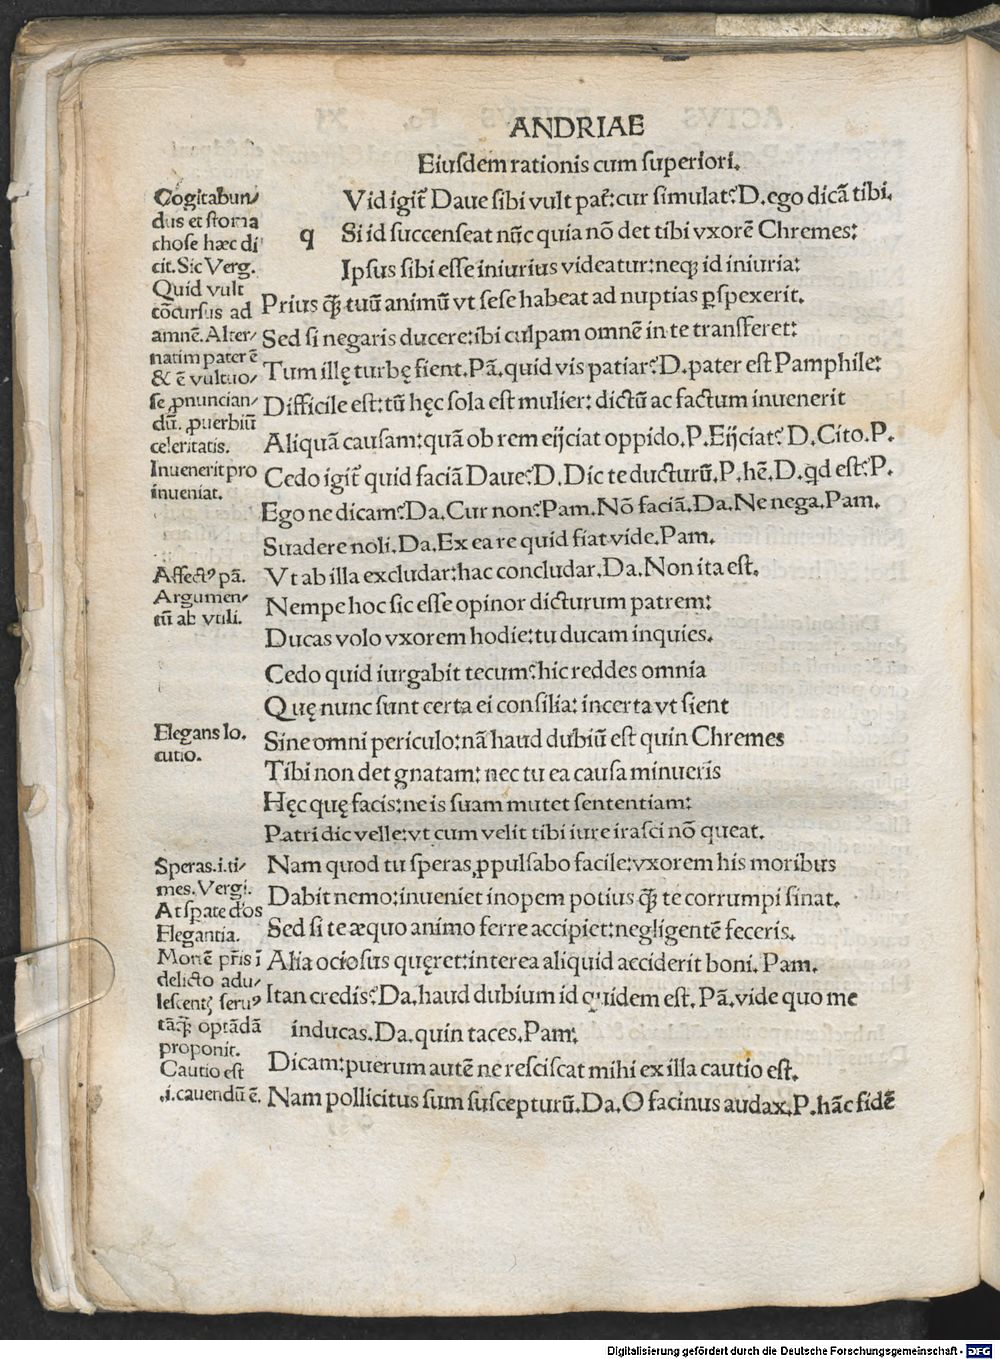 ANDRIAE
Eiusdem rationis cum superiori.
Vid igit̃ Daue sibi vult pat̃:cur simulat?D.ego dicã tibi.
q Si id succenseat nũc quia nõ det tibi vxorẽ Chremes:
Ipsus sibi esse iniurius videatur:neq; id iniuria:
Prius q̃ʒ tuũ animũ vt sese habeat ad nuptias ꝑspexerit.
Sed si negaris ducere:ibi culpam omnẽ in te transferet:
Tum illę turbę fient.Pã.quid vis patiar?D.pater est Pamphile:
Difficile est:tũ hęc sola est mulier: dictũ ac factum inuenerit
Aliquã causam:quã ob rem eijciat oppido.P.Eijciat? D.Cito.P.
Cedo igit̃ quid faciã Daue?D.Dic te ducturũ.P.hẽ.D.qd est?P.
Ego ne dicam?Da.Cur non?Pam.Nõ faciã.Da.Ne nega.Pam.
Suadere noli.Da.Ex ea re quid fiat vide.Pam.
Vt ab illa excludar:hac concludar.Da.Non ita est.
Nempe hoc sic esse opinor dicturum patrem:
Ducas volo vxorem hodie:tu ducam inquies.
Cedo quid iurgabit tecum?hic reddes omnia
Quę nunc sunt certa ei consilia: incerta vt sient
Sine omni periculo:nã haud dubiũ est quin Chremes
Tibi non det gnatam: nec tu ea causa minueris
Hęc quę facis:ne is suam mutet sententiam:
Patri dic velle:vt cum velit tibi iure irasci nõ queat.
Nam quod tu speras ꝓpulsabo facile:vxorem his moribus
Dabit nemo:inueniet inopem potius q̃ʒ te corrumpi sinat.
Sed si te æquo animo ferre accipiet:negligentẽ feceris.
Alia ociosus quęret:interea aliquid acciderit boni. Pam.
Itan credis?Da.haud dubium id quidem est. Pã.vide quo me
inducas.Da.quin taces.Pam:
Dicam:puerum autẽ ne resciscat mihi ex illa cautio est.
Nam pollicitus sum suscepturũ.Da.O facinus audax.P.hãc fidẽ
Cogitabun/
dus et stoma
chose hæc di
cit.Sic Verg.
Quid vult
cõcursus ad
amnẽ.Alter/
natim pater ẽ
& ẽ vultuo/
se ꝓnuncian/
dũ. ꝓuerbiũ
celeritatis.
Inuenerit pro
inueniat.
Affectꝰ pã.
Argumen/
tũ ab vtili.
Elegans lo.
cutio.
Speras.i.ti/
mes.Vergi.
At sꝑate d'os
Elegantia.
Morẽ pr̃is ĩ
delicto adu/
lescentʒ seruꝰ
tãq̃ʒ optãdã
proponit.
Cautio est
.i.cauendũ ẽ.
Digitalisierung gefördert durch die Deutsche Forschungsgemeinschaft - DFG